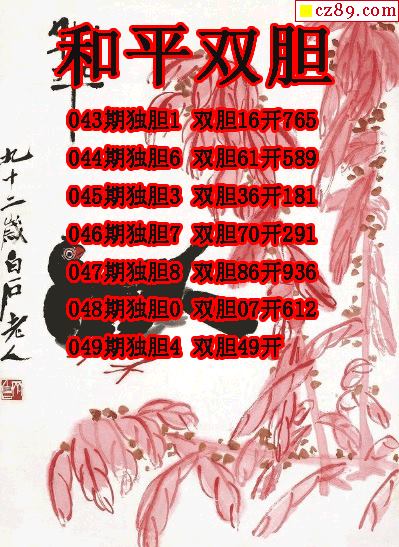 cz89.com
和平双胆
043期独胆1 双胆16开765
044期独胆6 双胆61开589
045期独胆3 双胆36开181
046期独胆7 双胆70开291
047期独胆8 双胆86开936
048期独胆0 双胆07开612
049期独胆4 双胆49开
九十二岁白石老人